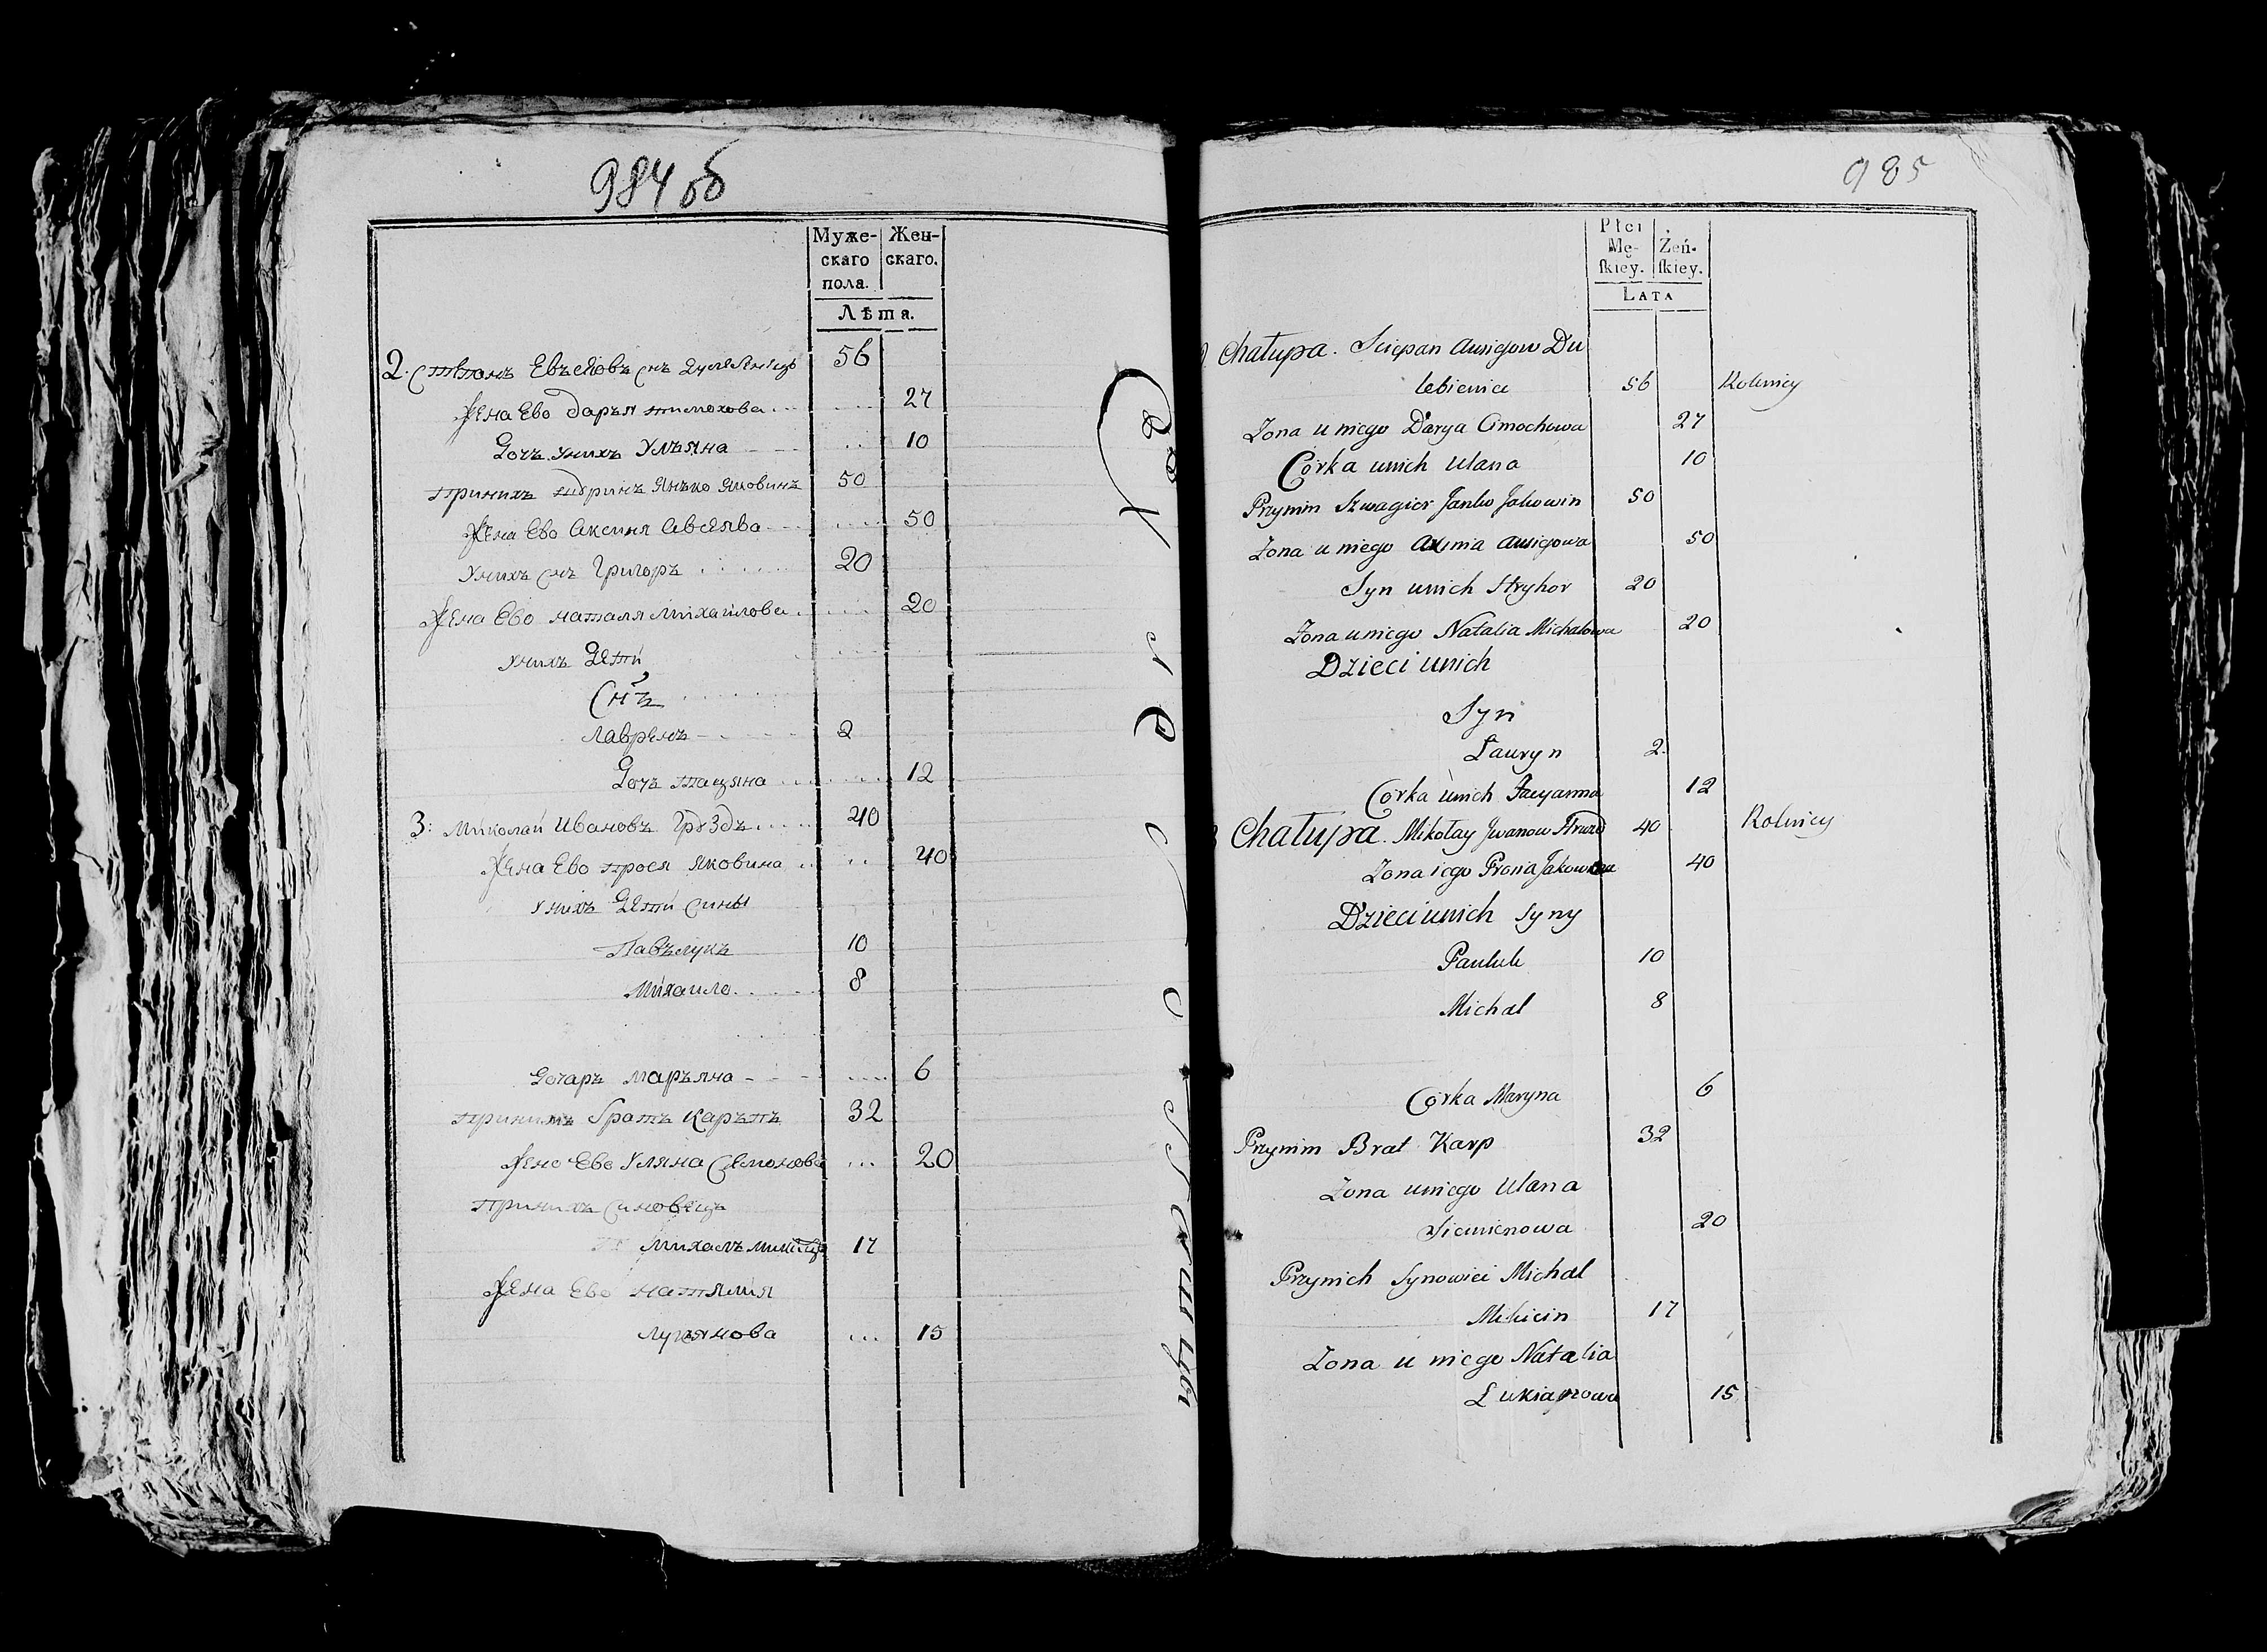 984 об
Муже-
скаго
пола.
Жен-
скаго.
Лѣта.
2. Стѣпанъ Евъсѣовъ снъ 56
Жена Ево Даръя тимохова 27
Дочъ унихъ Улъяна 10
принихъ Янъко Яковинъ 50
Жена Ево Аксиня Авсеява 50
Унихъ снъ Григоръ 20
Жена Ево наталя Михаилова 20
унихъ Дети
Снъ
Лавренъ 2
Дочъ тацяна 12
3: Миколаи Ивановъ Грꙋздъ 40
Жена Ево прося Яковина 40
унихъ Дети сины
Павълукъ 10
Михаило 8
Дочаръ маръяна 6
принимъ братъ Каръпъ 32
Жена Ево Уляна Семонова 20
принихъ синовецъ
Михалъ 17
Жена Ево наталия
лукянова 15
985
Płci
Mę-
ſkiey.
Żeń-
ſkiey.
Lata
Chałupa. Sciepan Ausiejow Du
lebieniec 56 Rolnicy
Zona u niego Darya Cimochowa 27
Corka unich Ulana 10
Przynim Szwagier Janko Jakowin 50
Zona u niego Axinia Ausiejowa 50
Syn unich Hryhor 20
Zona u niego Natalia Michałowa 20
Dzieci unich
Syn
Lauryn 2.
Corka unich Tacyanna 12
Chałupa. Mikołay Jwanow Hruzd 40 Rolnicy
Zona iego Prosia Jakowina 40
Dzieci unich Syny
Pauluk 10
Michal 8
Corka Maryna 6
Przynim Brat Karp 32
Zona uniego Ulana
Siemienowa 20
Przynich Synowiec Michal
Mikicin 17
Zona u niego Natalia
Lukianowa 15